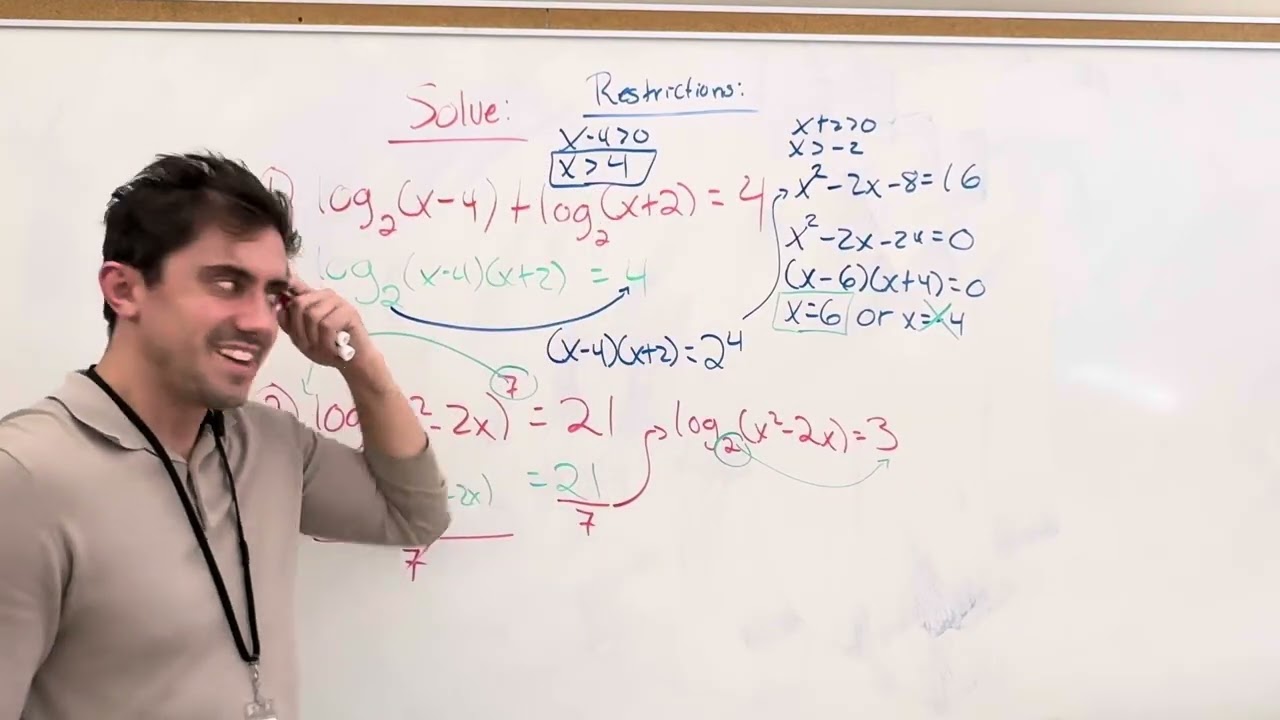 Solve:
Restrictions:
x-4>0
x>4
x+2>0
x>-2
1) log₂(x-4)+log₂(x+2)=4
log₂(x-4)(x+2)=4
(x-4)(x+2)=2⁴
x²-2x-8=16
x²-2x-24=0
(x-6)(x+4)=0
x=6 or x=-4
log ²-2x)⁷=21
-2x) =21
7 7
log₂(x²-2x)=3